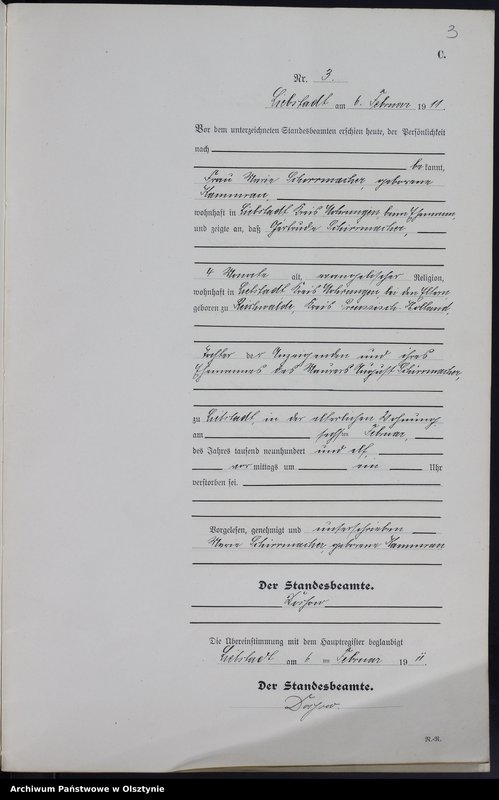 3
C.
Nr. 3.
Liebstadt am 6. Februar 1911.
Vor dem unterzeichneten Standesbeamten erschien heute, der Persönlichkeit
nach
bekannt,
Frau Marie Schirrmacher, geborene
wohnhaft in Liebstadt Kreis Mohrungen beim Ehemann,
und zeigte an, daß Gertrude Schirrmacher,
4 Monate alt, evangelischer Religion,
wohnhaft in Liebstadt Kreis Mohrungen bei den Eltern
geboren zu Reichwalde, Kreis Preussisch-Holland,
Tochter der Anzeigenden und ihres
Ehemannes des Maurers August Schirrmacher,
zu Liebstadt, in der elterlichen Wohnung
am sechsten Februar,
des Jahres tausend neunhundert und elf,
vor mittags um ein Uhr
verstorben sei.
Vorgelesen, genehmigt und unterschrieben
Marie Schirrmacher, geborene
Der Standesbeamte.
Die Übereinstimmung mit dem Hauptregister beglaubigt
Liebstadt am 6 ten Februar 1911.
Der Standesbeamte.
R.-R.
Archiwum Państwowe w Olsztynie